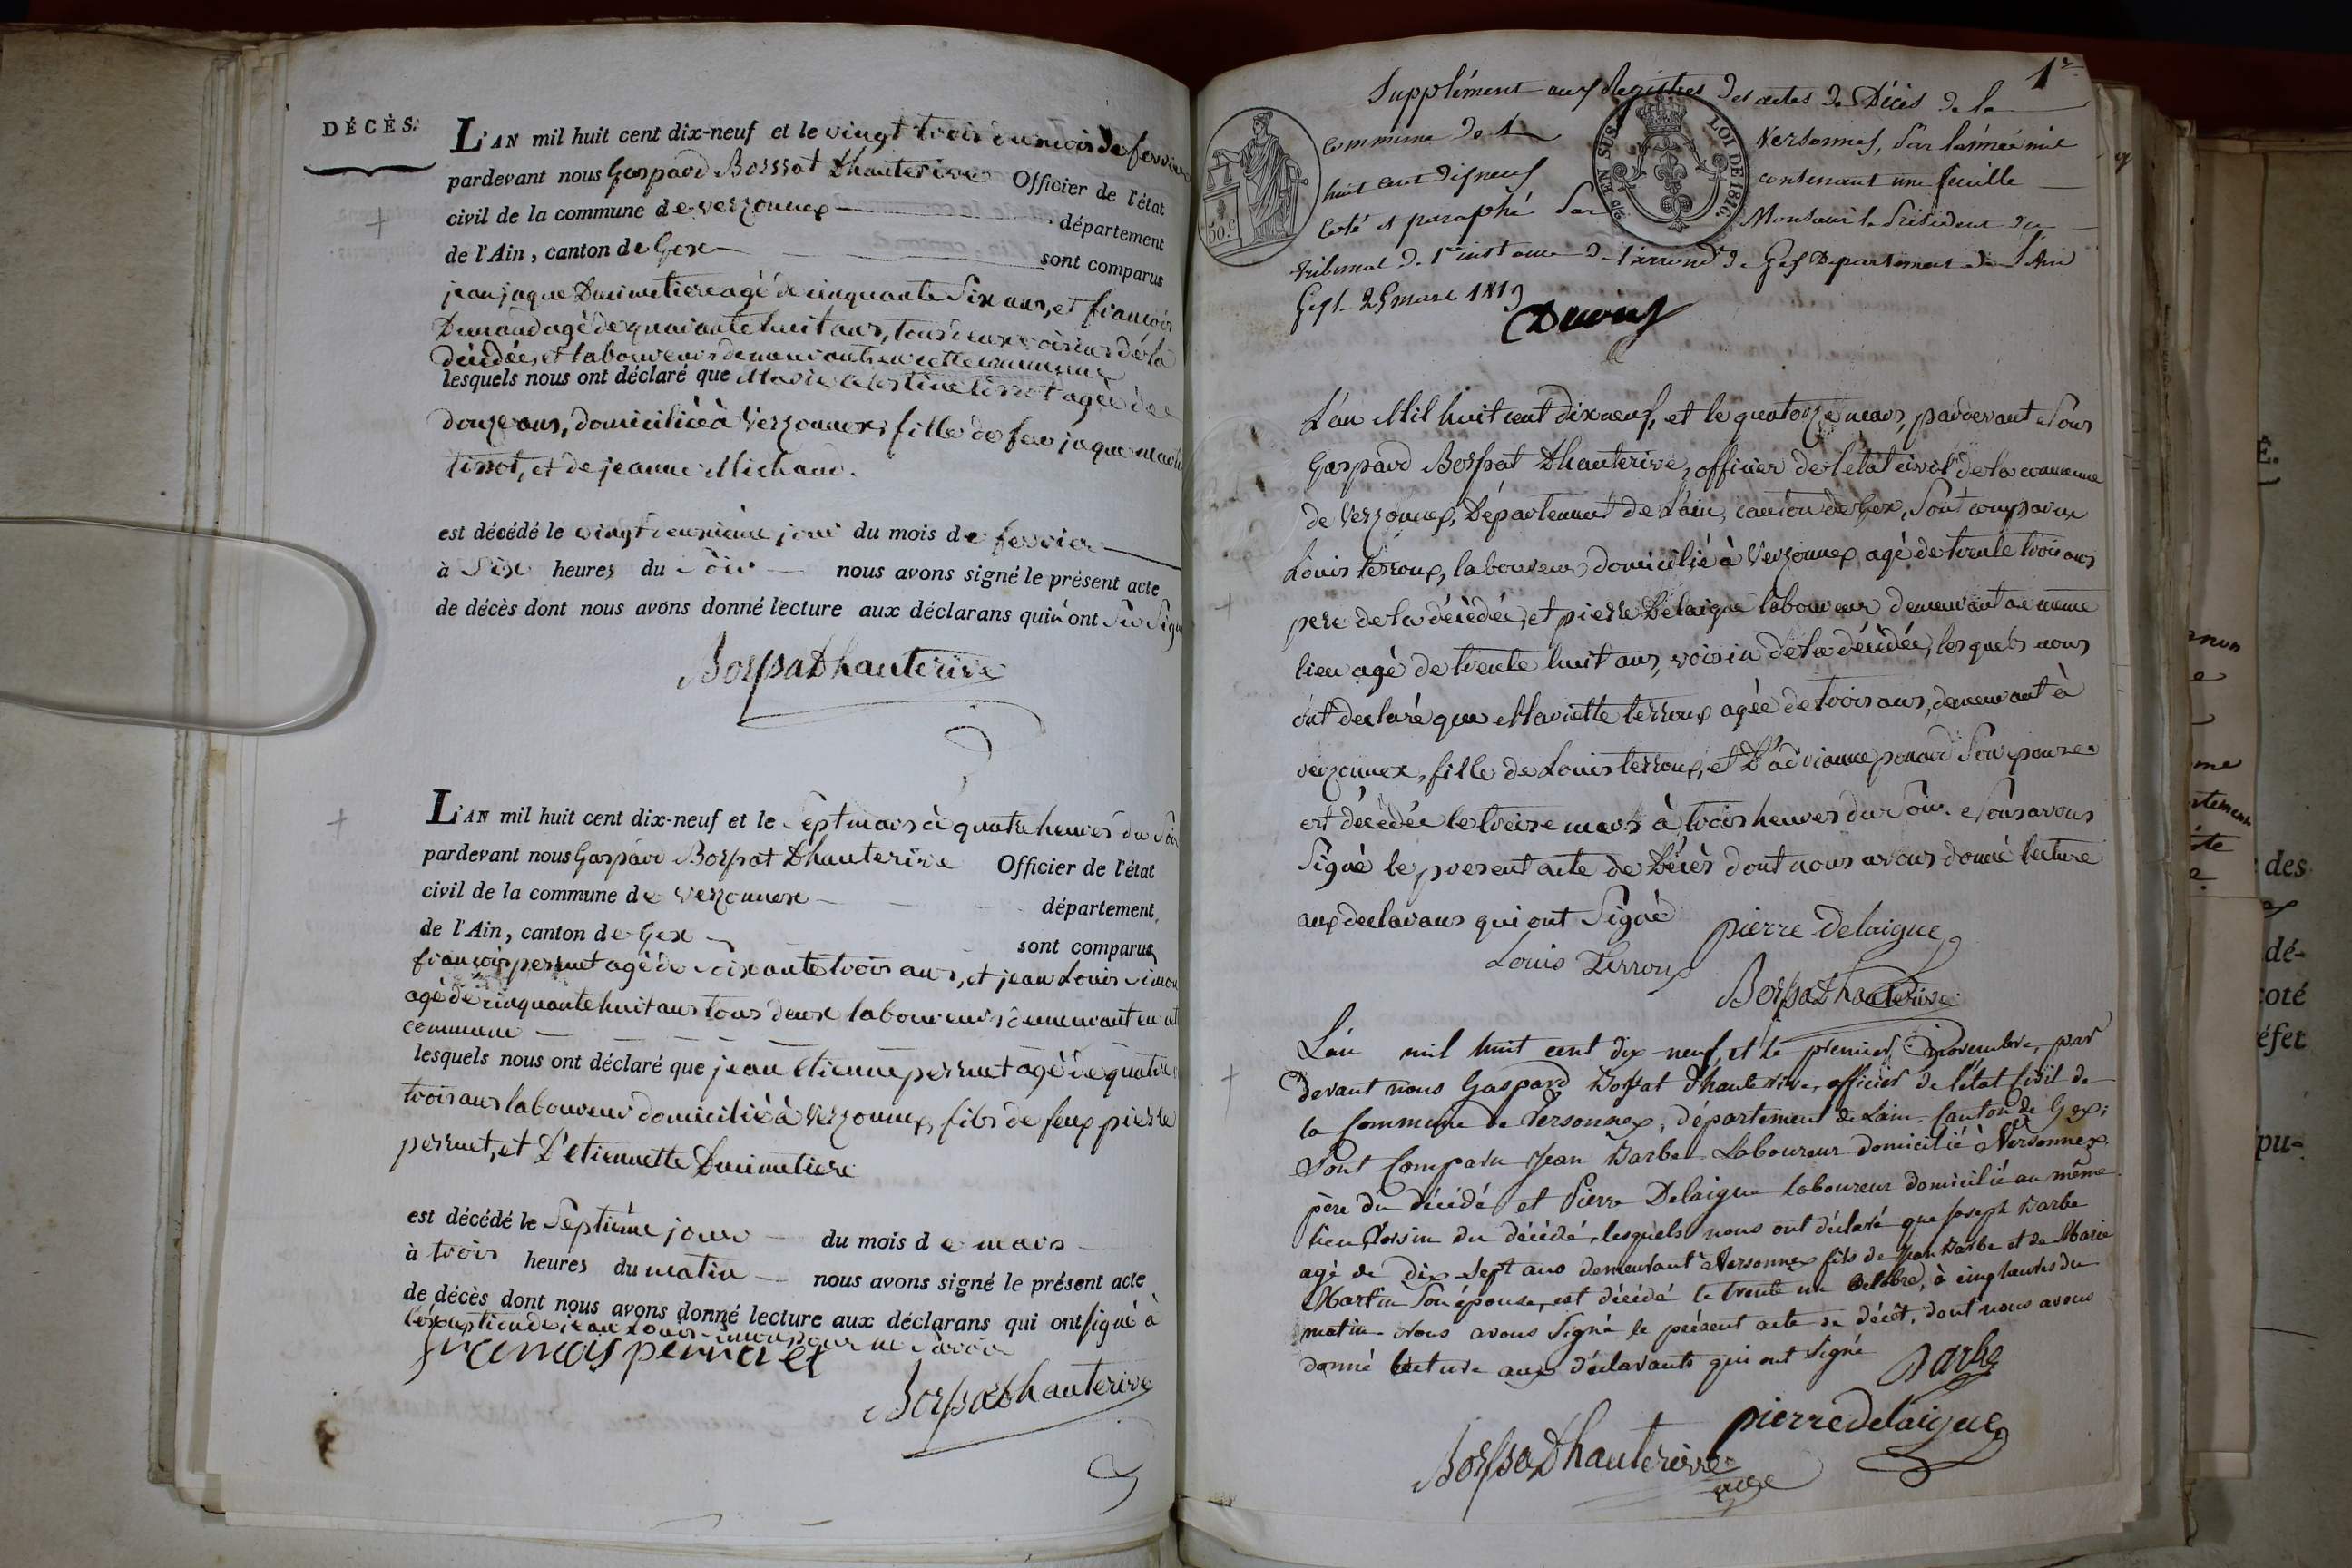 DÉCÈS.
L'AN mil huit cent dix-neuf et le vingt trois du mois de fevrier
pardevant nous Gaspard Bossat Dhauterive Officier de l'état
civil de la commune de verzonnex département
de l'Ain, canton de Gex sont comparus
jean jaque Ducimetiere agé de cinquante Six ans, et francois
Dunand agé de quarante huit ans, tous deux voisins de la
décédée, et laboureurs demeurants en cette commune
lesquels nous ont déclaré que Marie Celestine tissot agée de
douze ans, domiciliée à Verzonnex, fille de feu jaque
tissot, et de jeanne Michaud.
est décédé le vingt deuxieme jour du mois de fevrier
à Six heures du Soir nous avons signé le présent acte
de décès dont nous avons donné lecture aux déclarans qui n'ont Su Signer
BossatDhauterive
L'AN mil huit cent dix-neuf et le Sept mars à quatre heures du Soir
pardevant nous Gaspard Bossat Dhauterive Officier de l'état
civil de la commune de verzonnex département,
de l'Ain, canton de Gex sont comparus
francois perruet agé de Soixante trois ans, et jean Louis
agé de cinquante huit ans tous deux laboureurs demeurant en
commune
lesquels nous ont déclaré que jean Etienne perruet agé de quatre
trois ans laboureur domicilié à Verzonnex, fils de feux pierre
perruet, et D'etiennette Ducimetiere
est décédé le Septième jour du mois de mars
à trois heures du matin nous avons signé le présent acte
de décès dont nous avons donné lecture aux déclarans qui ont signé à
l'exception de jean Louis pour ne Savoir
francois perruet
BossatDhauterive
1r
Supplément aux Registres des actes de Décès de la
commune de Versonnex, Pour l'année mil
huit cent dixneuf contenant une feuille
Coté et paraphé Par Monsieur le Président du
tribunal de 1re instance de l'arrond de Gex Département de l'Ain
Gex le 25 mars 1819
50.C
EN SUS
LOI DE 1816.
L'an Mil huit cent dix neuf, et le quatorze mars, pardevant Nous
Gaspard Bossat Dhauterive, officier de l'etat civil de la commune
de Verzonnex, Département de L'ain, canton de Gex, Sont comparu
Louis terroux, laboureur domicilié à Verzonnex agé de trente trois ans
pere de la décèdée, et pierre Delaigue laboureur demeurant au meme
lieu agé de trente huit ans, voisin de la décèdée, lesquels nous
ont declaré que Mariette terroux agée de trois ans, demeurant à
verzonnex, fille de Louis terroux, et D'adrianne ponard Son epouse
est décèdée le treise mars à trois heures du Soir. Nous avons
Signé le present acte de Décès dont nous avons donné lecture
aux declarans qui ont Signé
pierre Delaigue
Louis Terroux
BossatDhauterive
L'an mil huit cent dix neuf, et le premier Novembre, par
devant nous Gaspard Bossat d'hauterive, officier de l'état Civil de
la Commune de Versonnex, département de Lain, Canton de Gex;
Sont Comparu Jean Barbe Laboureur domicilié à Versonnex
père du décédé et Pierre Delaigue laboureur domicilié au même
lieu, Voisin du décédé, lesquels nous ont déclaré que Joseph Barbe
agé de dix Sept ans demeurant à Versonnex fils de Jean Barbe et de Marie
Martin Son épouse, est décédé le trente un Octobre, à cinq heures du
matin. Nous avons Signé le présent acte de décèt, dont nous avons
donné lecture aux déclarants qui ont signé
Barbe
pierre delaigue
BossatDhauterive